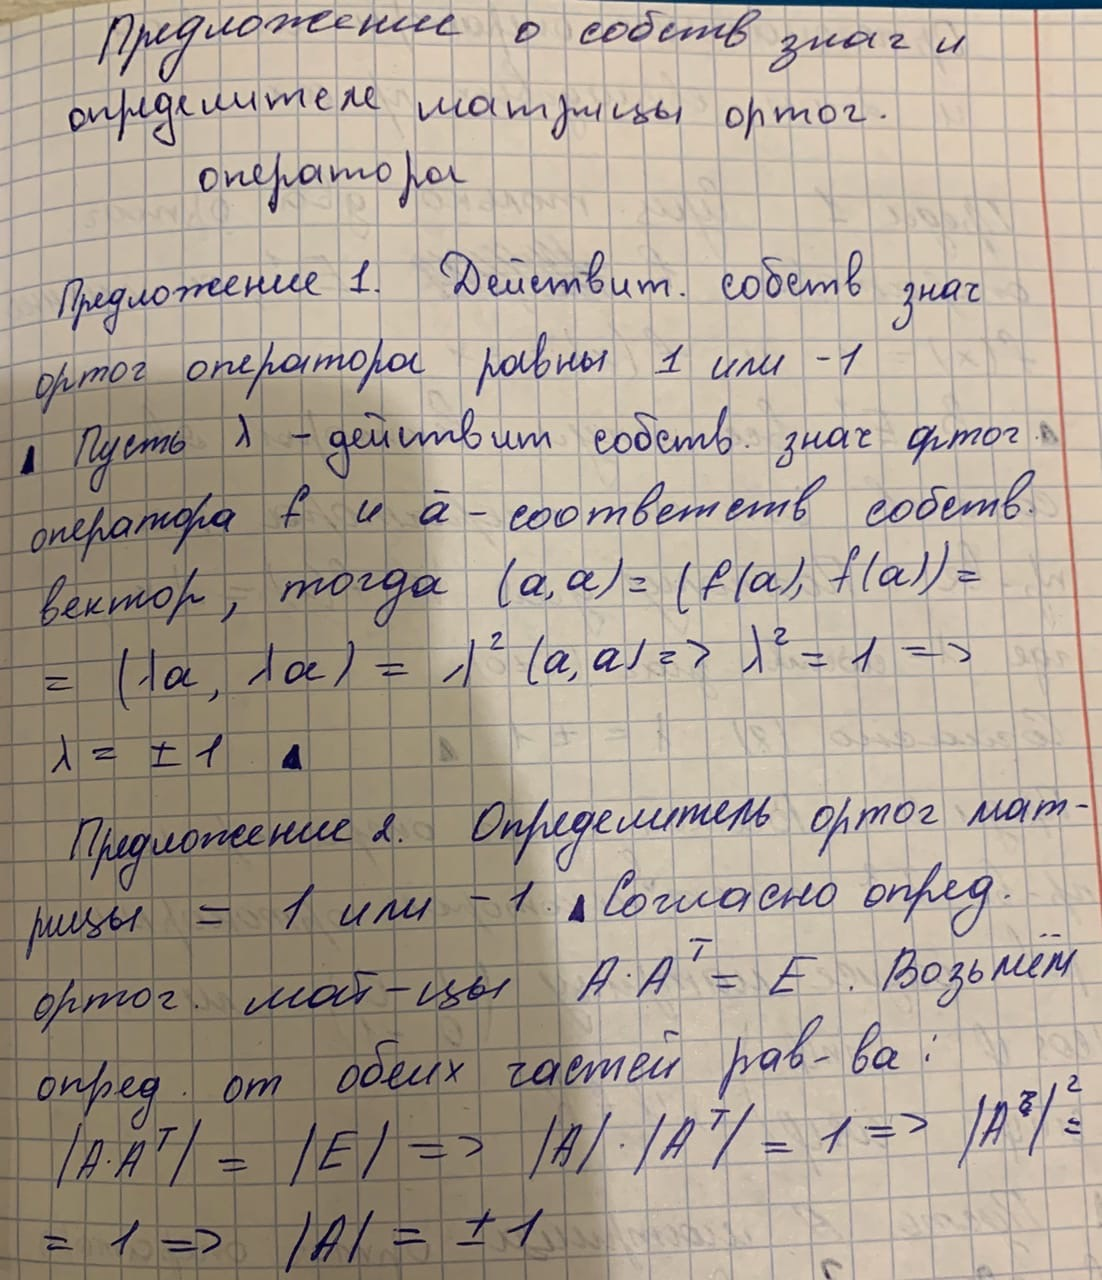 Предложение о собств знач и
определителе матрицы ортог.
оператора
Предложение 1. Действит. собств знач
ортог оператора равны 1 или -1
▲ Пусть λ - действит собств. знач ортог.
оператора f и ā - соответств собств.
вектор, тогда (a,a) = (f(a), f(a)) =
= (λa, λa) = λ² (a,a) => λ² = 1 =>
λ = ± 1 ▲
Предложение 2. Определитель ортог мат-
рицы = 1 или -1. ▲ Согласно опред.
ортог. мат-цы A·Aᵀ = E. Возьмём
опред. от обеих частей рав-ва:
|A·Aᵀ| = |E| => |A|·|Aᵀ| = 1 => |A|² =
= 1 => |A| = ± 1